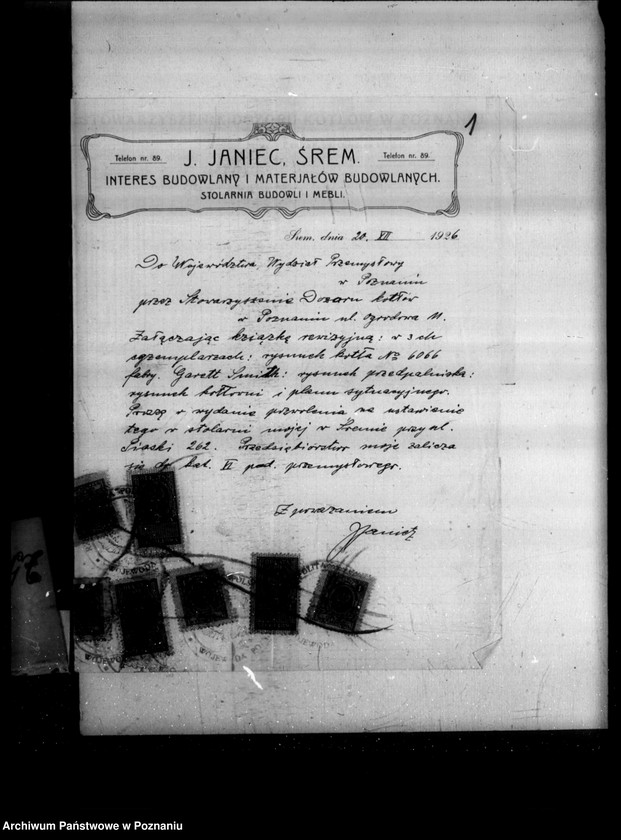 1
Telefon nr. 89. J. JANIEC, ŚREM. Telefon nr. 89.
INTERES BUDOWLANY I MATERJAŁÓW BUDOWLANYCH.
STOLARNIA BUDOWLI I MEBLI.
Śrem, dnia 20. VII 1926
Do Województwa, Wydział Przemysłowy
w Poznaniu
przez Stowarzyszenie Dozoru kotłów
w Poznaniu ul. Ogrodowa 11.
Załączając książkę rewizyjną: w 3 ch
egzemplarzach: rysunek kotła No 6066
faby. Garett Smith: rysunek przedpaleniska:
rysunek kotłowni i planu sytuacyjnego.
Proszę o wydanie pozwolenia na ustawienie
tego w stolarni mojej w Śremie przy ul.
Piaski 262. Przedsiębiorstwo moje zalicza
się do kat. VI pod. przemysłowego.
Z poważaniem
JJaniec
Archiwum Państwowe w Poznaniu